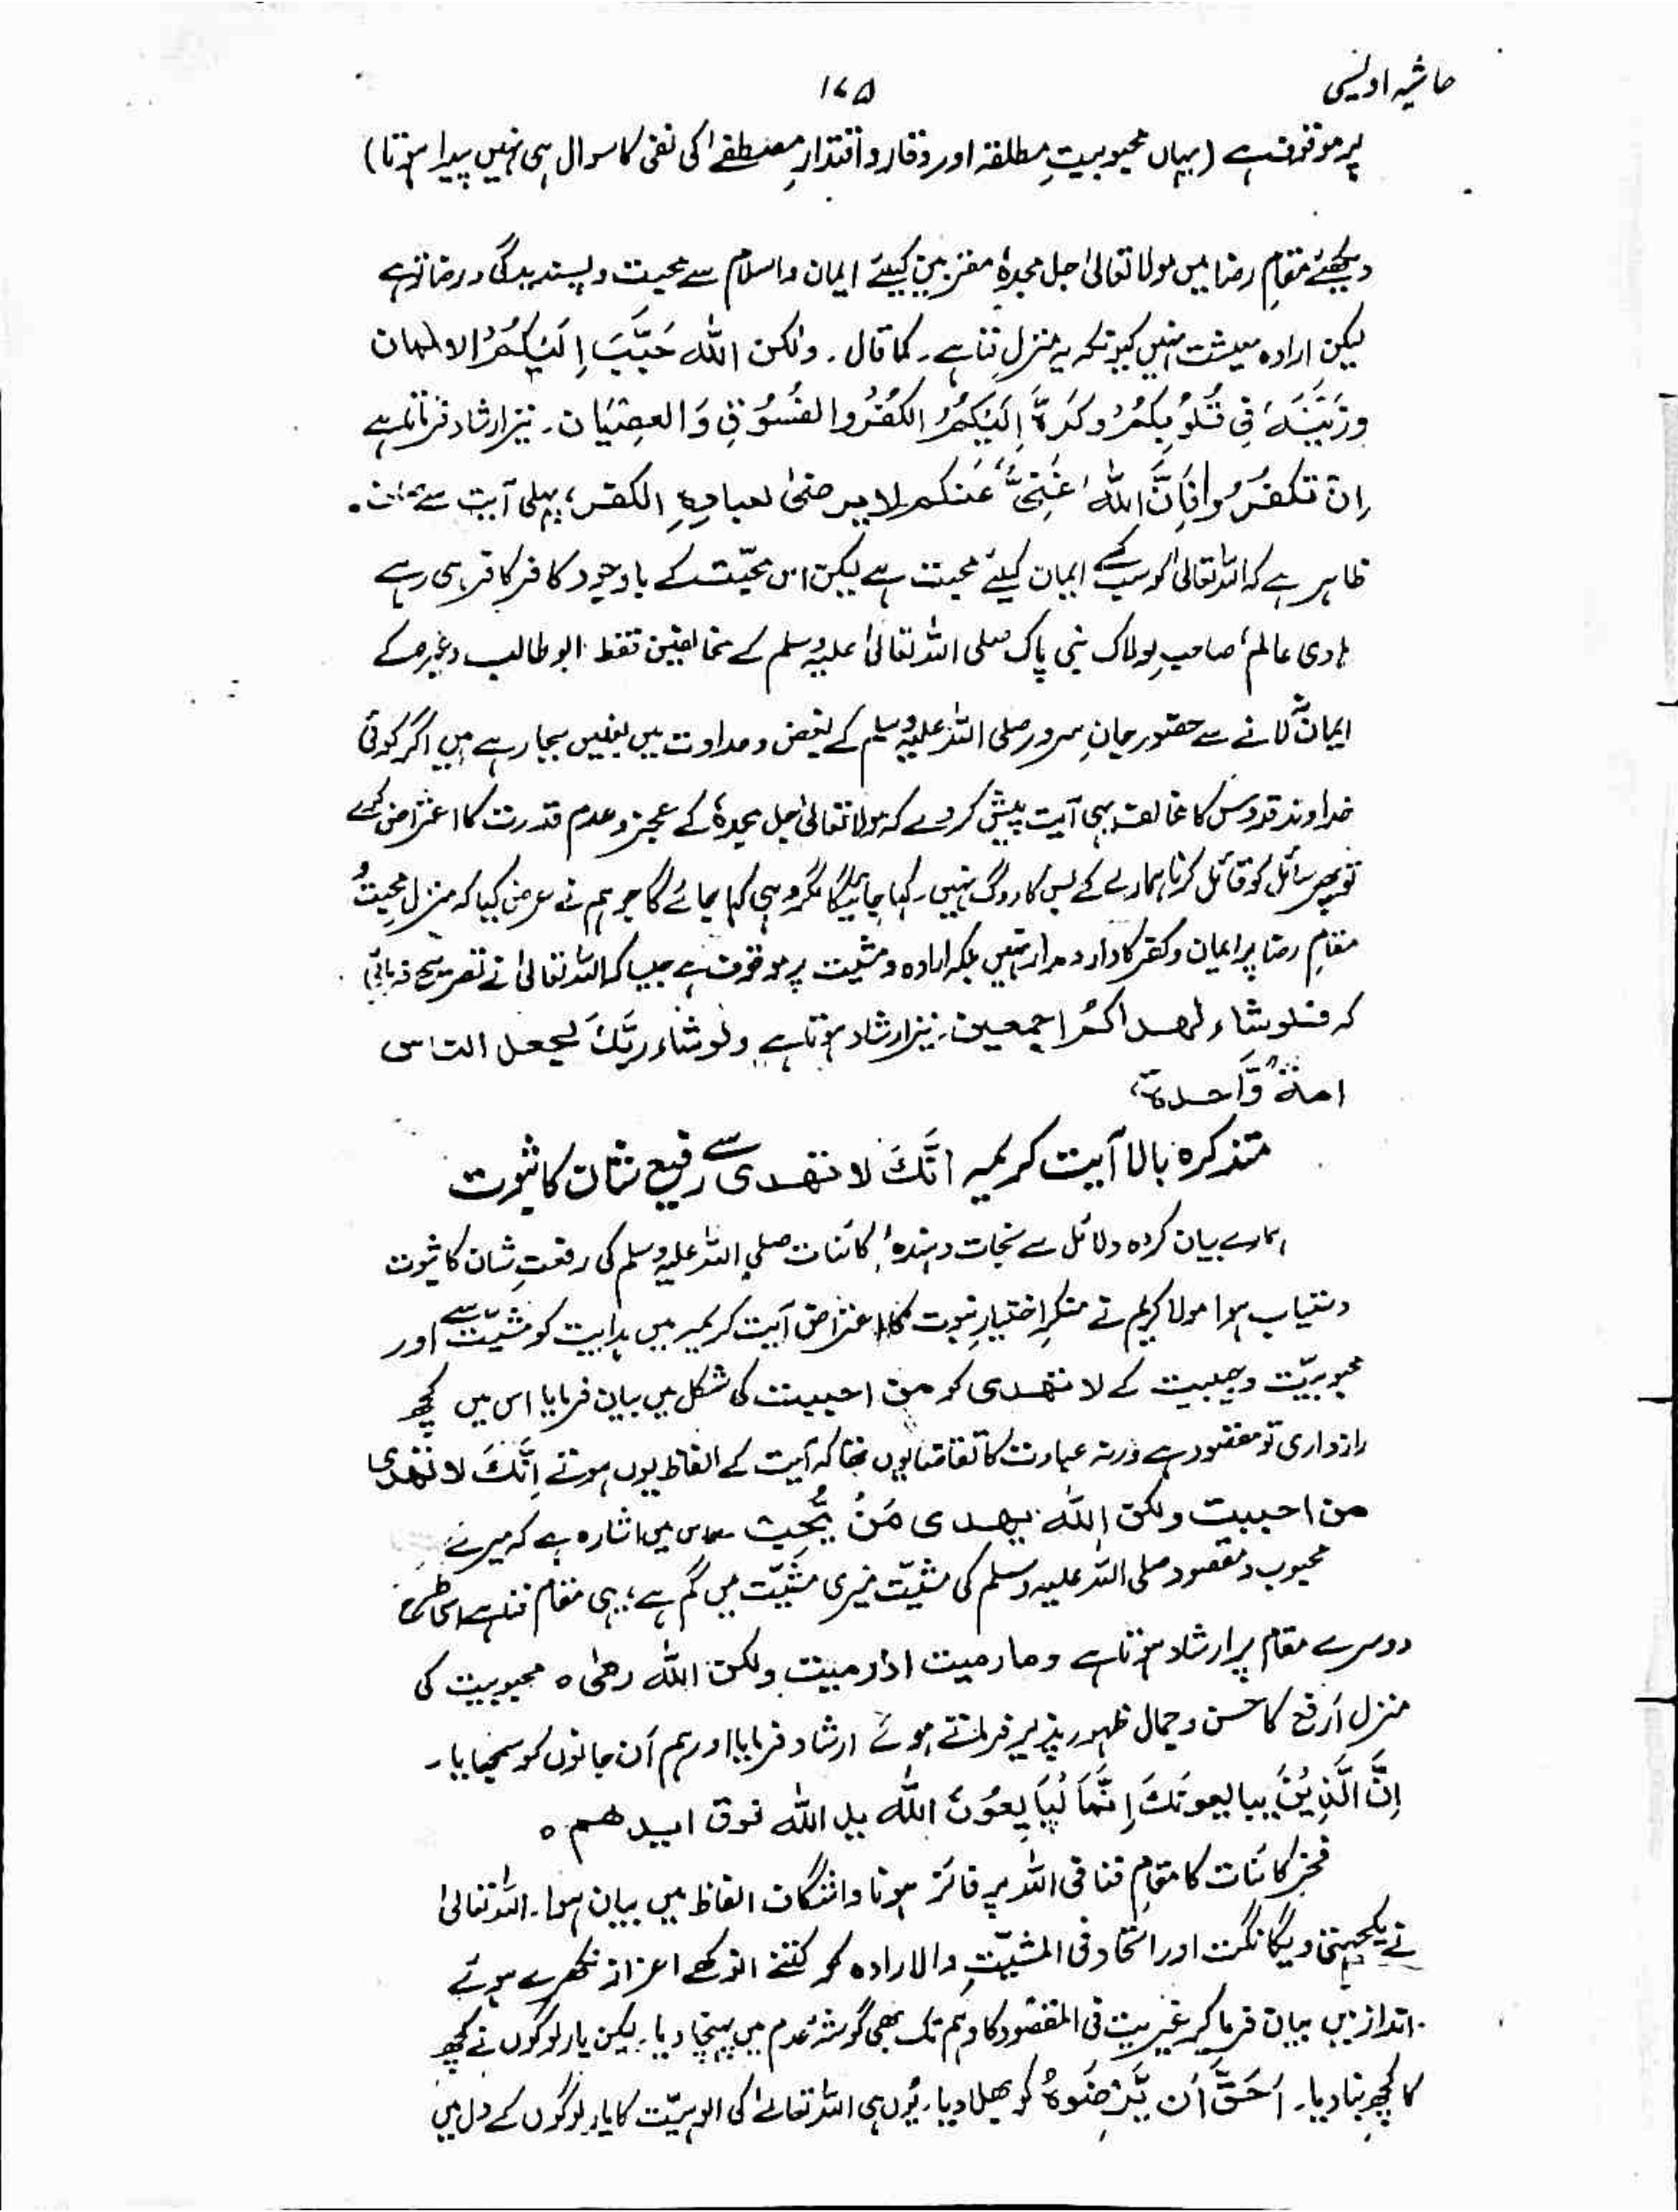 حاشیہ اویسی
۱۷۵
پر موقوف ہے (یہاں محبوبیتِ مطلقہ اور وقار و اقتدارِ مصطفےٰ کی نفی کا سوال ہی نہیں پیدا ہوتا)
دیکھئے مقامِ رضا میں مولا تعالیٰ جل مجدہٗ کیلئے ایمان و اسلام سے محبت و پسندیدگی و رضا تو ہے
لیکن ارادہ میشت نہیں کیونکہ یہ منزلِ فنا ہے۔ کما قال۔ ولٰکن اللّٰہ حَبَّبَ اِلَیْکُمُ الایمان
وزَیَّنَہٗ فِی قُلُوْبِکُمْ وکَرَّہَ اِلَیْکُمُ الکُفْرُ والفُسُوْقِ وَالعِصْیَان۔ نیز ارشاد فرماتا ہے
اِن تکفُرُوا فَاِنَّ اللّٰہ غَنِیٌّ عَنکم لا یرضیٰ لعبادہِ الکفر، پہلی آیت سے صاف
ظاہر ہے کہ اللہ تعالیٰ کو سب کے ایمان کیلئے محبت ہے لیکن اس محبّت کے باوجود کافر کافر ہی رہے
ہادی عالم، صاحبِ لولاک نبی پاک صلی اللہ تعالیٰ علیہ وسلم کے مخالفین فقط ابو طالب وغیرہ کے
ایمان نہ لانے سے حضور جانِ سرور صلی اللہ علیہ وسلم کے بغض و عداوت میں بغلیں بجا رہے ہیں اگر کوئی
خداوند قدوس کا مخالف یہی آیت پیش کر دے کہ مولا تعالیٰ جل مجدہٗ کے عجز و عدم قدرت کا اعتراض کرے
تو پھر سائل کو قائل کرنا ہمارے کے بس کا روگ نہیں۔ کہا جائیگا مگر وہی کہا جائے گا جو ہم نے عرض کیا کہ منزلِ محبت و
مقامِ رضا پر ایمان و کفر کا دار و مدار نہیں بلکہ ارادہ و مشیت پر موقوف ہے جیسا کہ اللہ تعالیٰ نے تصریح فرمائی
کہ فلو شاء لھداکُمْ اجمعین۔ نیز ارشاد ہوتا ہے ولو شاء ربّکَ لجعل الناس
امۃً وَّاحدۃ،
متذکرہ بالا آیت کریمہ انَّکَ لا تھدی سے رفیع شان کا ثبوت
ہمارے بیان کردہ دلائل سے نجات دہندہٗ کائنات صلی اللہ علیہ وسلم کی رفعتِ شان کا ثبوت
دستیاب ہوا مولا کریم نے منکرِ اختیارِ نبوت کا اعتراض آیت کریمہ میں ہدایت کو مشیّت سے اور
محبوبیّت و کے لا تھدی کو من احببت کی شکل میں بیان فرمایا اس میں کچھ
رازداری تو مقصود ہے ورنہ عبارت کا تقاضا یوں تھا کہ آیت کے الفاظ یوں ہوتے اِنَّکَ لا تھدی
من احببت ولکن اللّٰہ یھدی مَنْ یُّحِبُّ اس میں اشارہ ہے کہ میرے
محبوب و مقصود صلی اللہ علیہ وسلم کی مشیّت میری مشیّت میں گم ہے، یہی مقامِ فنا ہے اسی طرح
دوسرے مقام پر ارشاد ہوتا ہے وما رمیت اذ رمیت ولکن اللّٰہ رمیٰ ہ محبوبیت کی
منزل اَرفع کا حسن و جمال ظہور پذیر فرماتے ہوئے ارشاد فرمایا اور ہم اَن جانوں کو سمجھایا۔
اِنَّ الَّذِیْنَ یبایعونَکَ اِنَّمَا یُبَایِعُوْنَ اللّٰہ ید اللّٰہ فوق ایدھم ہ
فخرِ کائنات کا مقامِ فنا فی اللہ پر فائز ہونا واشگاف الفاظ میں بیان ہوا۔ اللہ تعالیٰ
نے یکجہتی و یگانگت اور اتحاد فی المشیّتِ والارادہ کو کتنے انوکھے اعزاز نکھرے ہوئے
انداز میں بیان فرما کر غیریت فی المقصود کا وہم تک بھی گوشۂ عدم میں پہنچا دیا۔ لیکن یار لوگوں نے کچھ
کا کچھ بنا دیا۔ اَحَقُّ اَن یَّرْضَوہُ کو بھلا دیا۔ یُوں ہی اللہ تعالےٰ کی الوہیّت کا یار لوگوں کے دل میں